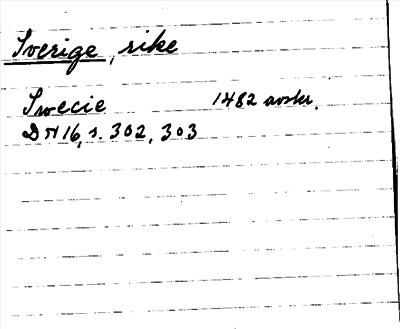 Sverige, rike
Swecie 1482 avskr.
DN 16, s. 302, 303